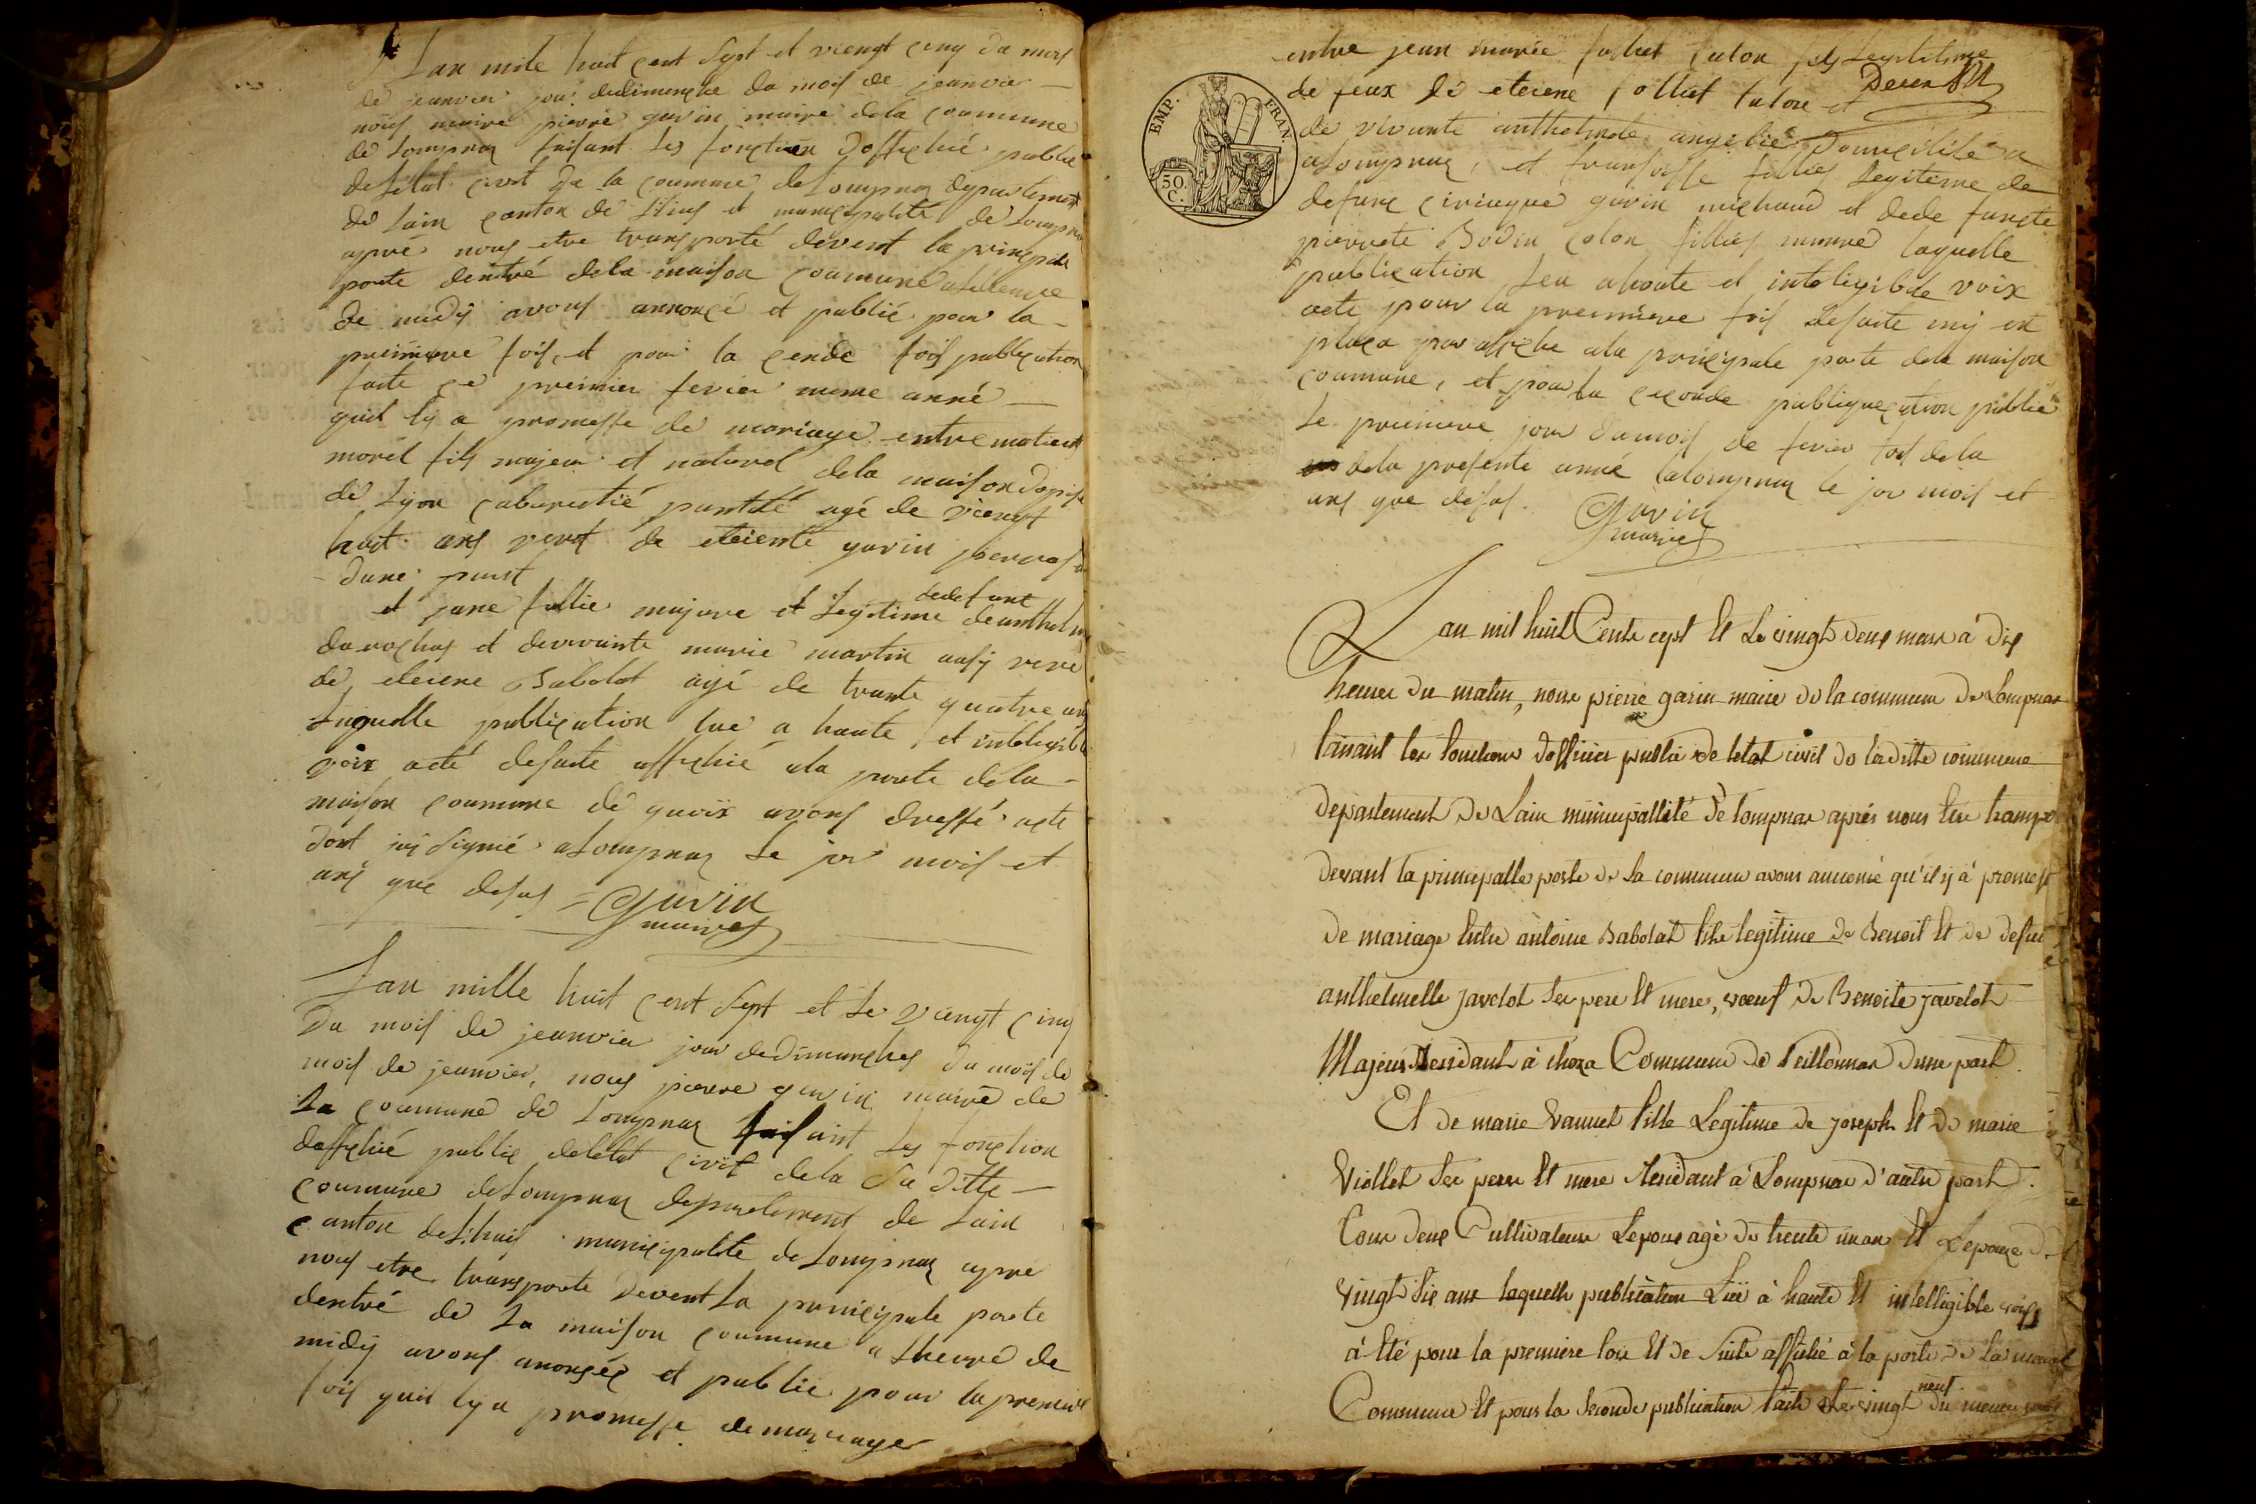 Lan mile huit cent Sept et viengt cinq du mois
de jeanvier jour dedimenche du mois de jeanvier
nous maire pierre garin maire dela coumune
de Lompnas faisant les fonction doffichié public
deletat civil de la coumune de Lompnas departement
de Lain canton de Lhuis et municipalité de Lompnas
apré nous etre transporté devent la principale
porte dentré dela maison coumune alheure
de midÿ avons annoncé et publié pour la
premiere fois, et pour la cende fois publication
faite ce premier fevier meme anné
quil lÿ a promesse de mariage entre matieu
morel fils majeur et naturel dela maison dopise
de Lÿon cabaretié patité agé de viengt
huit ans vevf de eteiente garin perras
dune part
et jane fillie majure et Legitime dedefunt de anthelme
durochas et devivante marie martin ausÿ veve
de eteiene Babolat agé de trante quatre ans
Laquelle publication lue a haute et inteligible
voix acté desuite affichié ala porte dela
maison coumune de quoix avons dressé acte
dont jaÿ Signié a Lompnas le jor mois et
ans que desus = Garin
maire
Lan mille huit cent Sept et Le viengt cinq
Du mois de jeanvier jour dedimanches du mois de
mois de jeanvier, nous pierre garin maire de
La coumune de Lompnas faisant Les fonction
doffichié public deletat civil dela Su ditte
coumune de Lompnas departement de Lain
canton de Lhuis municipalite de Lompnas apre
nous etre transporte devent La principale porte
dentré de La maison coumune a Lheure de
midÿ avons anoncée et publié pour la premiere
fois quil lÿ a promesse de mariage
entre jean marie folliet talon fils Legitime
de feux de eteiene folliet talon et
de vivante anthelmele angelie domicilié a
a Lompnas, et fransoisse fillies Legitime de
defunc ciriaque garin michaud et dede functe
pierrete Bodin colon fillies mineure laquelle
publication Leu ahaute et inteligible voix
acte pour la premiere fois desuite miz et
placa par affiche ala principale porte dela maison
coumune, et pour la ceconde publiquation publié
Le premiere jour dumois de fevier
dela presente anné a Lompnas le jor mois et
ans que desus. Garin
maire
EMP. FRAN.
50. C.
Lan mil huit Cents cept Et Le vingt deux mars à dix
heures du matin, nous pierre garin maire de la commune de Lompnas
faisant les fonctions dofficier public de letat civil de laditte commune
departement de Lain municipallité de lompnas après nous être transporté
devant la principalle porte de la commune avons annoncé qu'il ÿ à promesse
de mariage Entre antoine Babolat fils legitime de Benoit Et de defunte
anthelmelle javelot Ses pere Et mere, vœuf de Benoite javelot
Majeur Residant à choza Commune de Seillonnas dune part
Et de marie Vannet fille Legitime de joseph Et de marie
Viollet Ses peres Et mere Residant à Lompnas d'autre part.
Tous deux Cultivateurs Lepoux agé de trente un ans Et Lepouze de
vingt Six ans laquelle publication Luë à haute Et intelligible voix
à Eté pour la premiere fois Et de Suite affiché à la porte de la maison
Commune Et pour la Seconde publication faite Le vingt neuf du meme mois